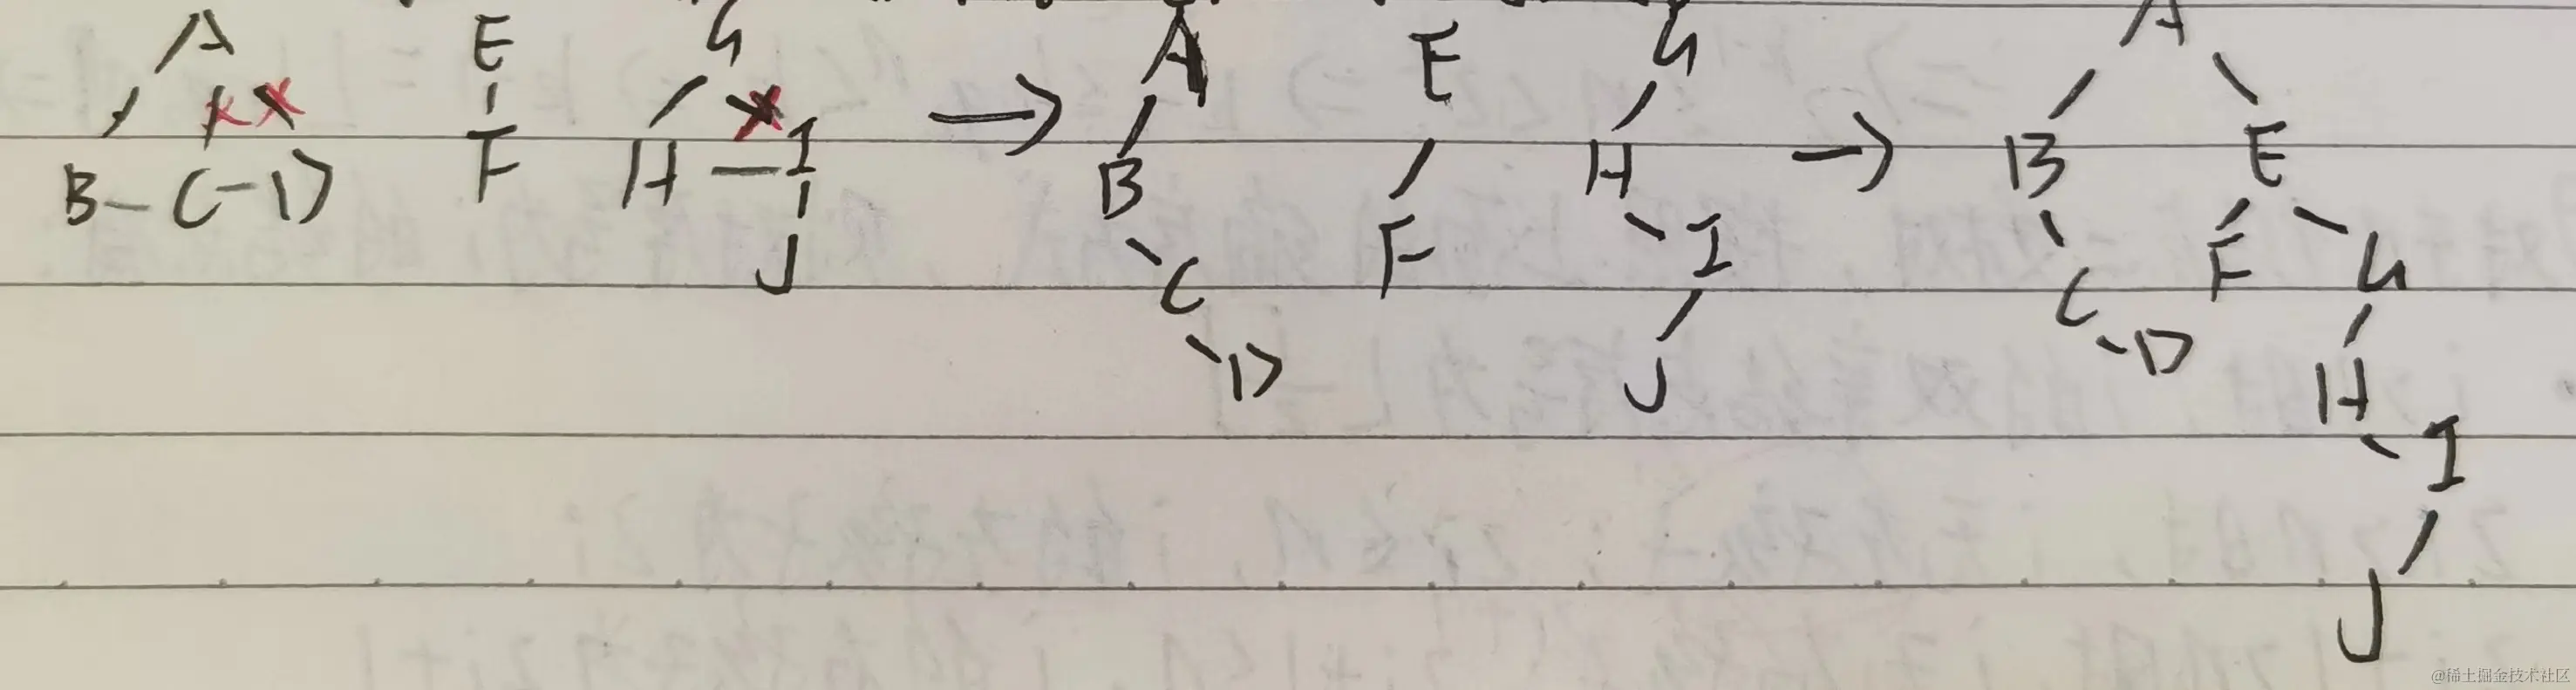 A E G → A E G → A
B-C-D F H-I B H B E
J C F I C F G
D J D H
I
J
@稀土掘金技术社区